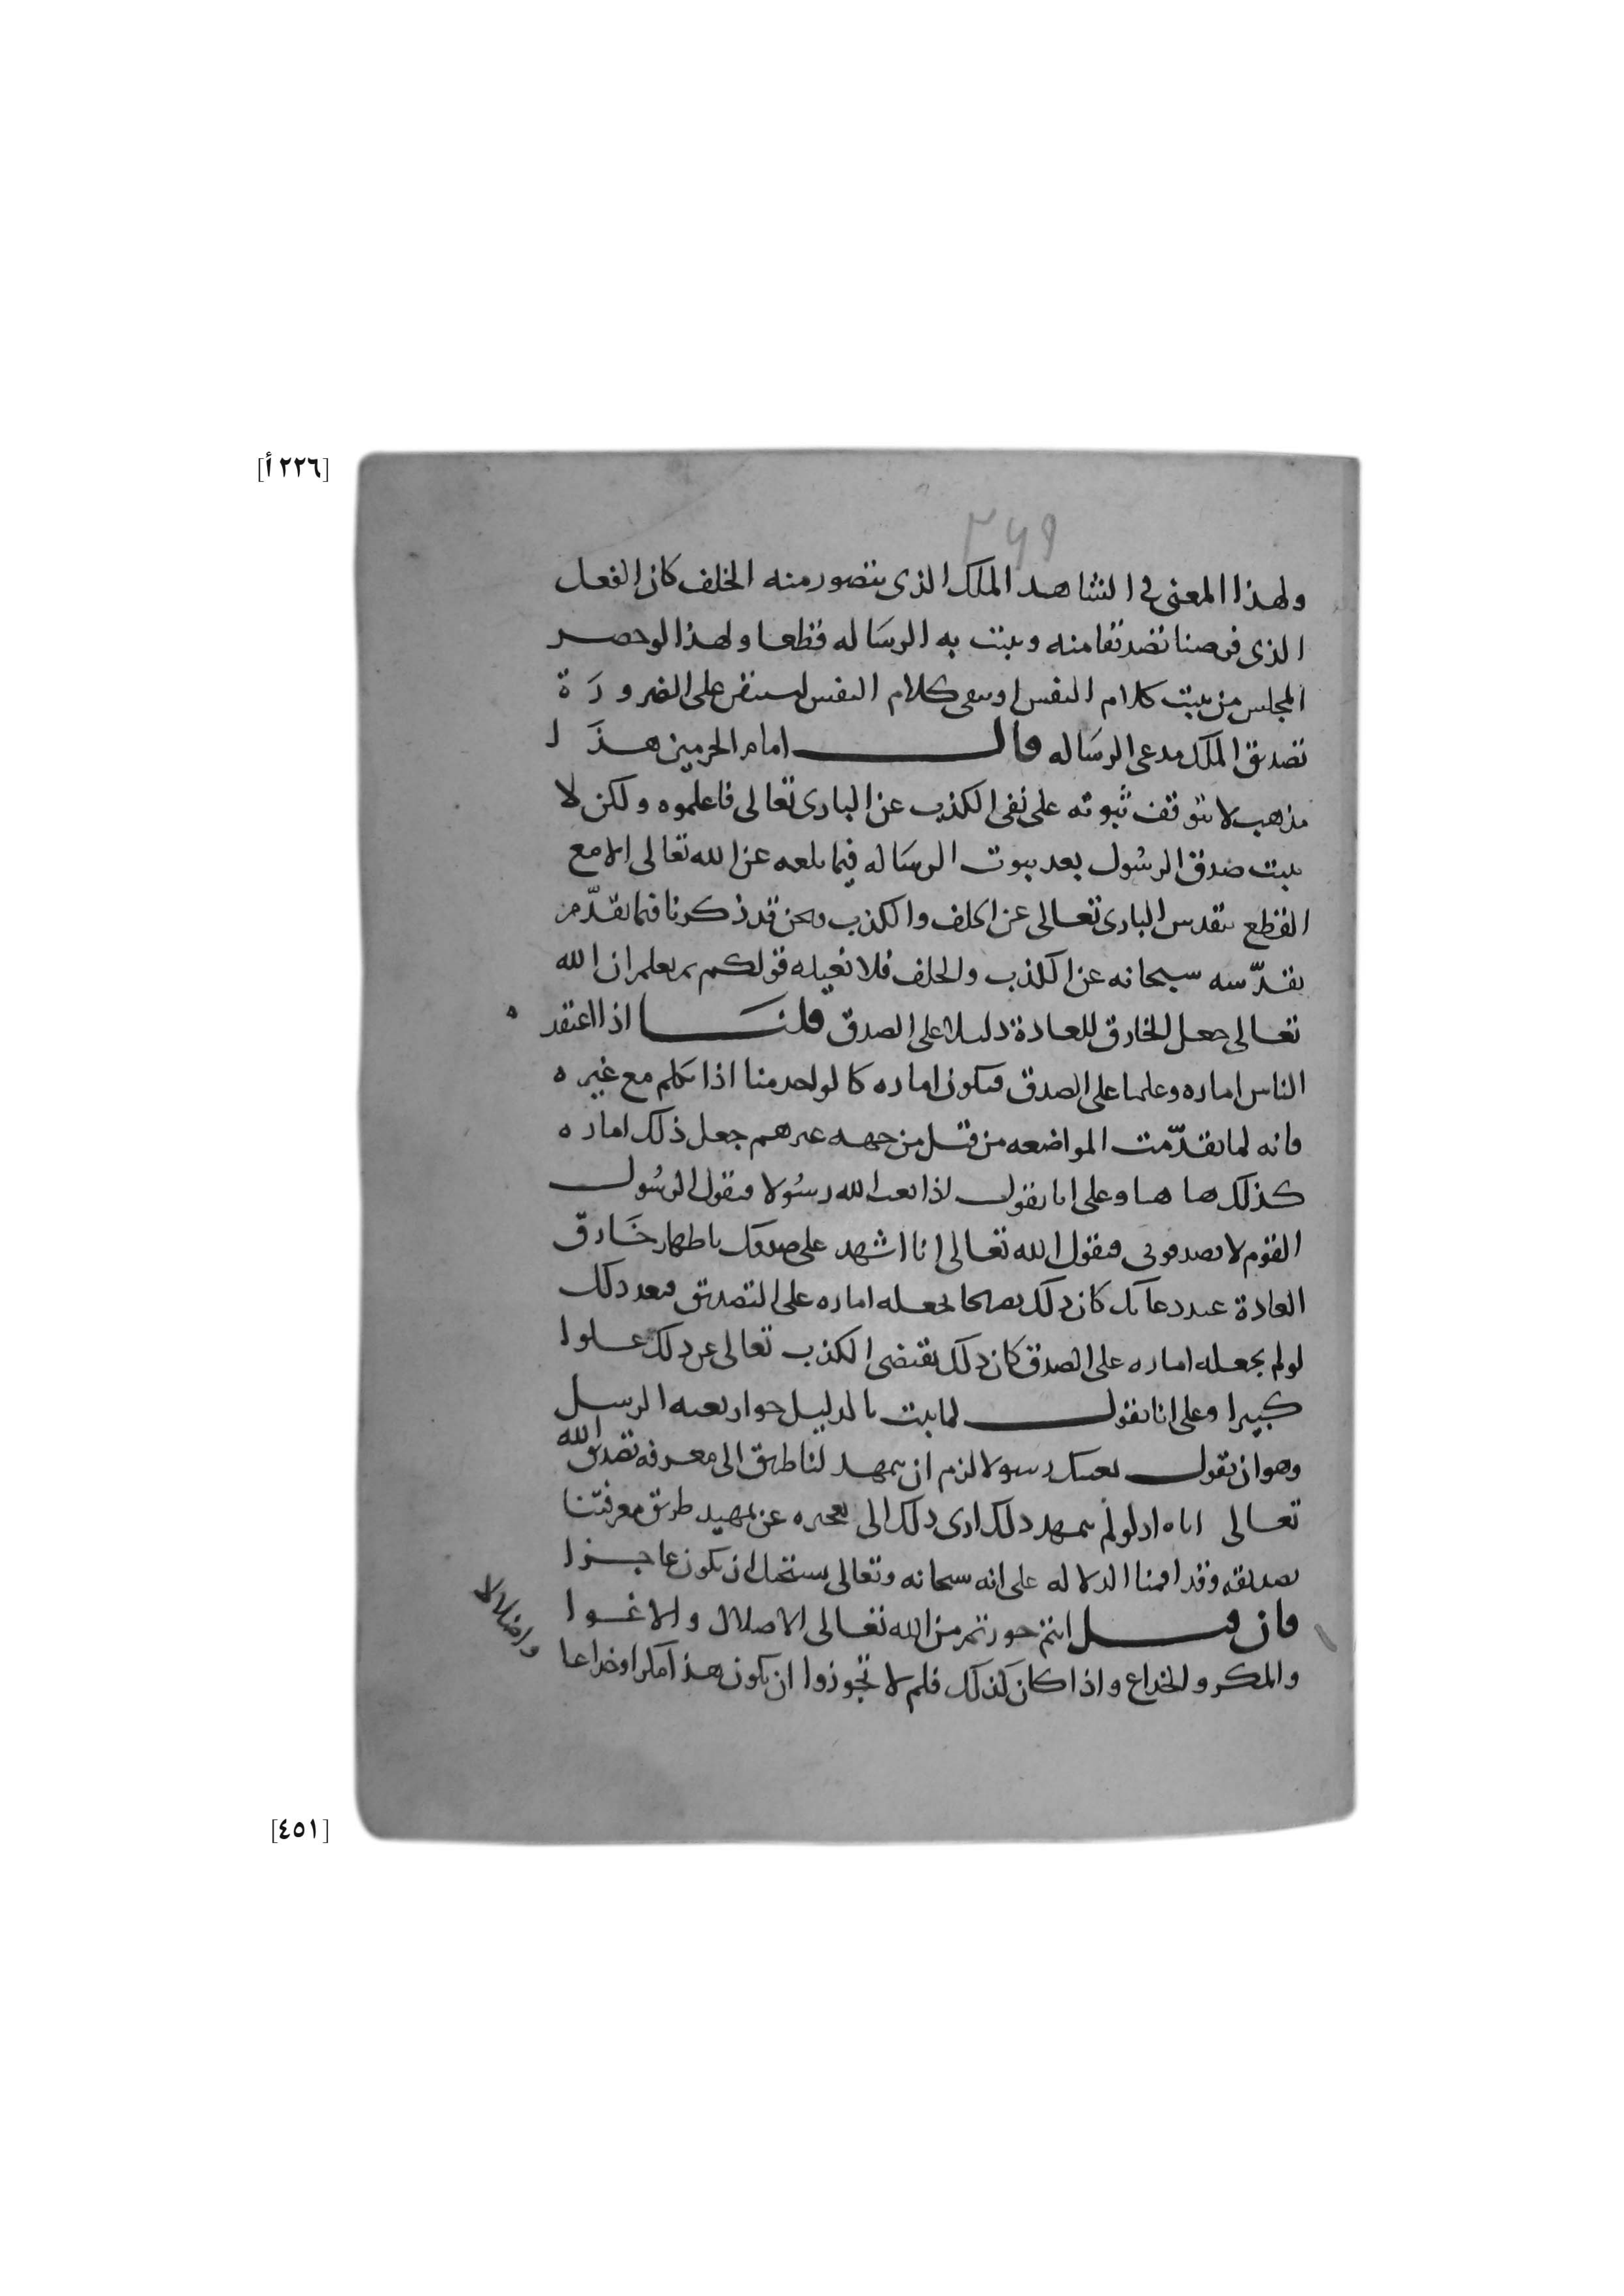 [٢٢٦ أ]
٢٦٩
ولهذا المعنى في الشاهد الملك الذي يتصور منه الخلف كان الفعل
الذي فرضنا تصديقا منه ويثبت به الرسَاله قطعا ولهذا لو حصر
المجلس من يثبت كلام النفس او ينفي كلام النفس لاستقر على الضرورَة
تصديق الملك مدعى الرسَاله قال امام الحرمين هذَا
مذهب لا يتوقف ثبوته على نفى الكذب عن البارى تعالى فاعلموه ولكن لا
يثبت صدق الرسُول بعد ثبوت الرسَاله فيما يبلغه عن الله تعالى الا مع
القطع بتقدس البارى تعالى عن الخلف والكذب ونحن قد ذكرنا فيما تقدّم من
تقدّسه سبحانه عن الكذب والخلف فلا نعيده قولكم بم يعلم ان الله
تعالى جعل الخارق للعادة دليلا على الصدق قلنَا اذا اعتقد
الناس اماره وعلما على الصدق فيكون اماره كالواحد منا اذا تكلم مع غيره
فانه لما تقدّمت المواضعه من قبل من جهه غيرهم جعل ذلك اماره
كذلك هاهنا وعلى انا نقول اذا بعث الله رسُولا فيقول الرسُول
القوم لا يصدقونى فيقول الله تعالى انا اشهد على صدقك باظهار خَارق
العادة عند دعائك كان ذلك تصريحا بجعله اماره على التصديق فبعد ذلك
لو لم يجعله اماره على الصدق كان ذلك يقتضى الكذب تعالى عن ذلك علوا
كبيرا وعلى انا نقول لما ثبت بالدليل جواز بعثه الرسل
وهو ان يقول بعثتك رسولا لزم ان يمهد لنا طريق الى معرفه تصديق الله
تعالى اياه اذ لو لم يمهد ذلك ادى ذلك الى تعجيزه عن تمهيد طريق معرفتنا
تصديقه وقد اقمنا الدلاله على انه سبحانه وتعالى يستحيل ان يكون عاجزا
فان قيل انتم جوزتم من الله تعالى الاضلال والاغوا
والمكر والخداع واذا كان كذلك فلم لا تجوزوا ان يكون هذا مكرا وخداعا
واضلالا
[٤٥١]